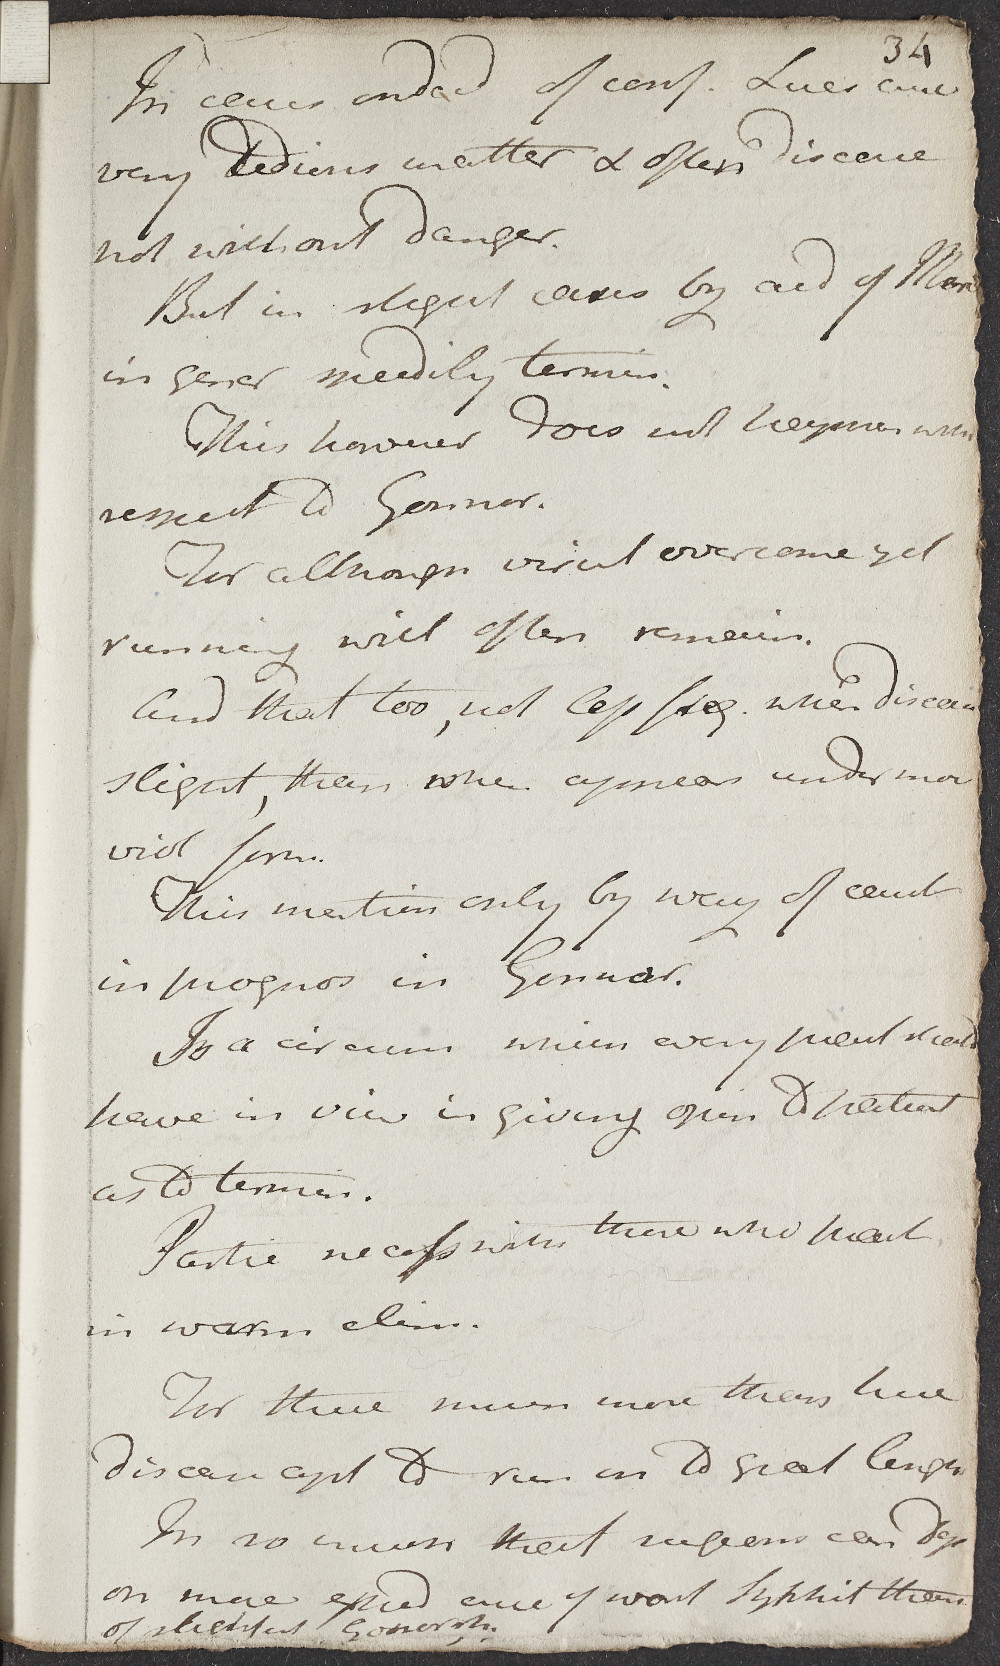 34
In cases indeed of conf. Lues cure
very tedious matter & often disease
not without danger.
But in slight cases by aid of Merc
in gener speedily termin.
This however does not happen with
respect to Gonnor.
For although virul overcome yet
running will often remain.
And that too, not less freq. when disease
slight, than when appears under more
viol form.
This mention only by way of caut
in prognos in Gonnor.
Is a circum which every pract should
have in view in giving opin to patient
as to termin.
Partic necess with those who pract
in warm clim.
For there much more than here
disease apt to run on to great length
In so much that surgeons can dep
on more speed cure of worst Syphil than
of slightest Gonorrh.